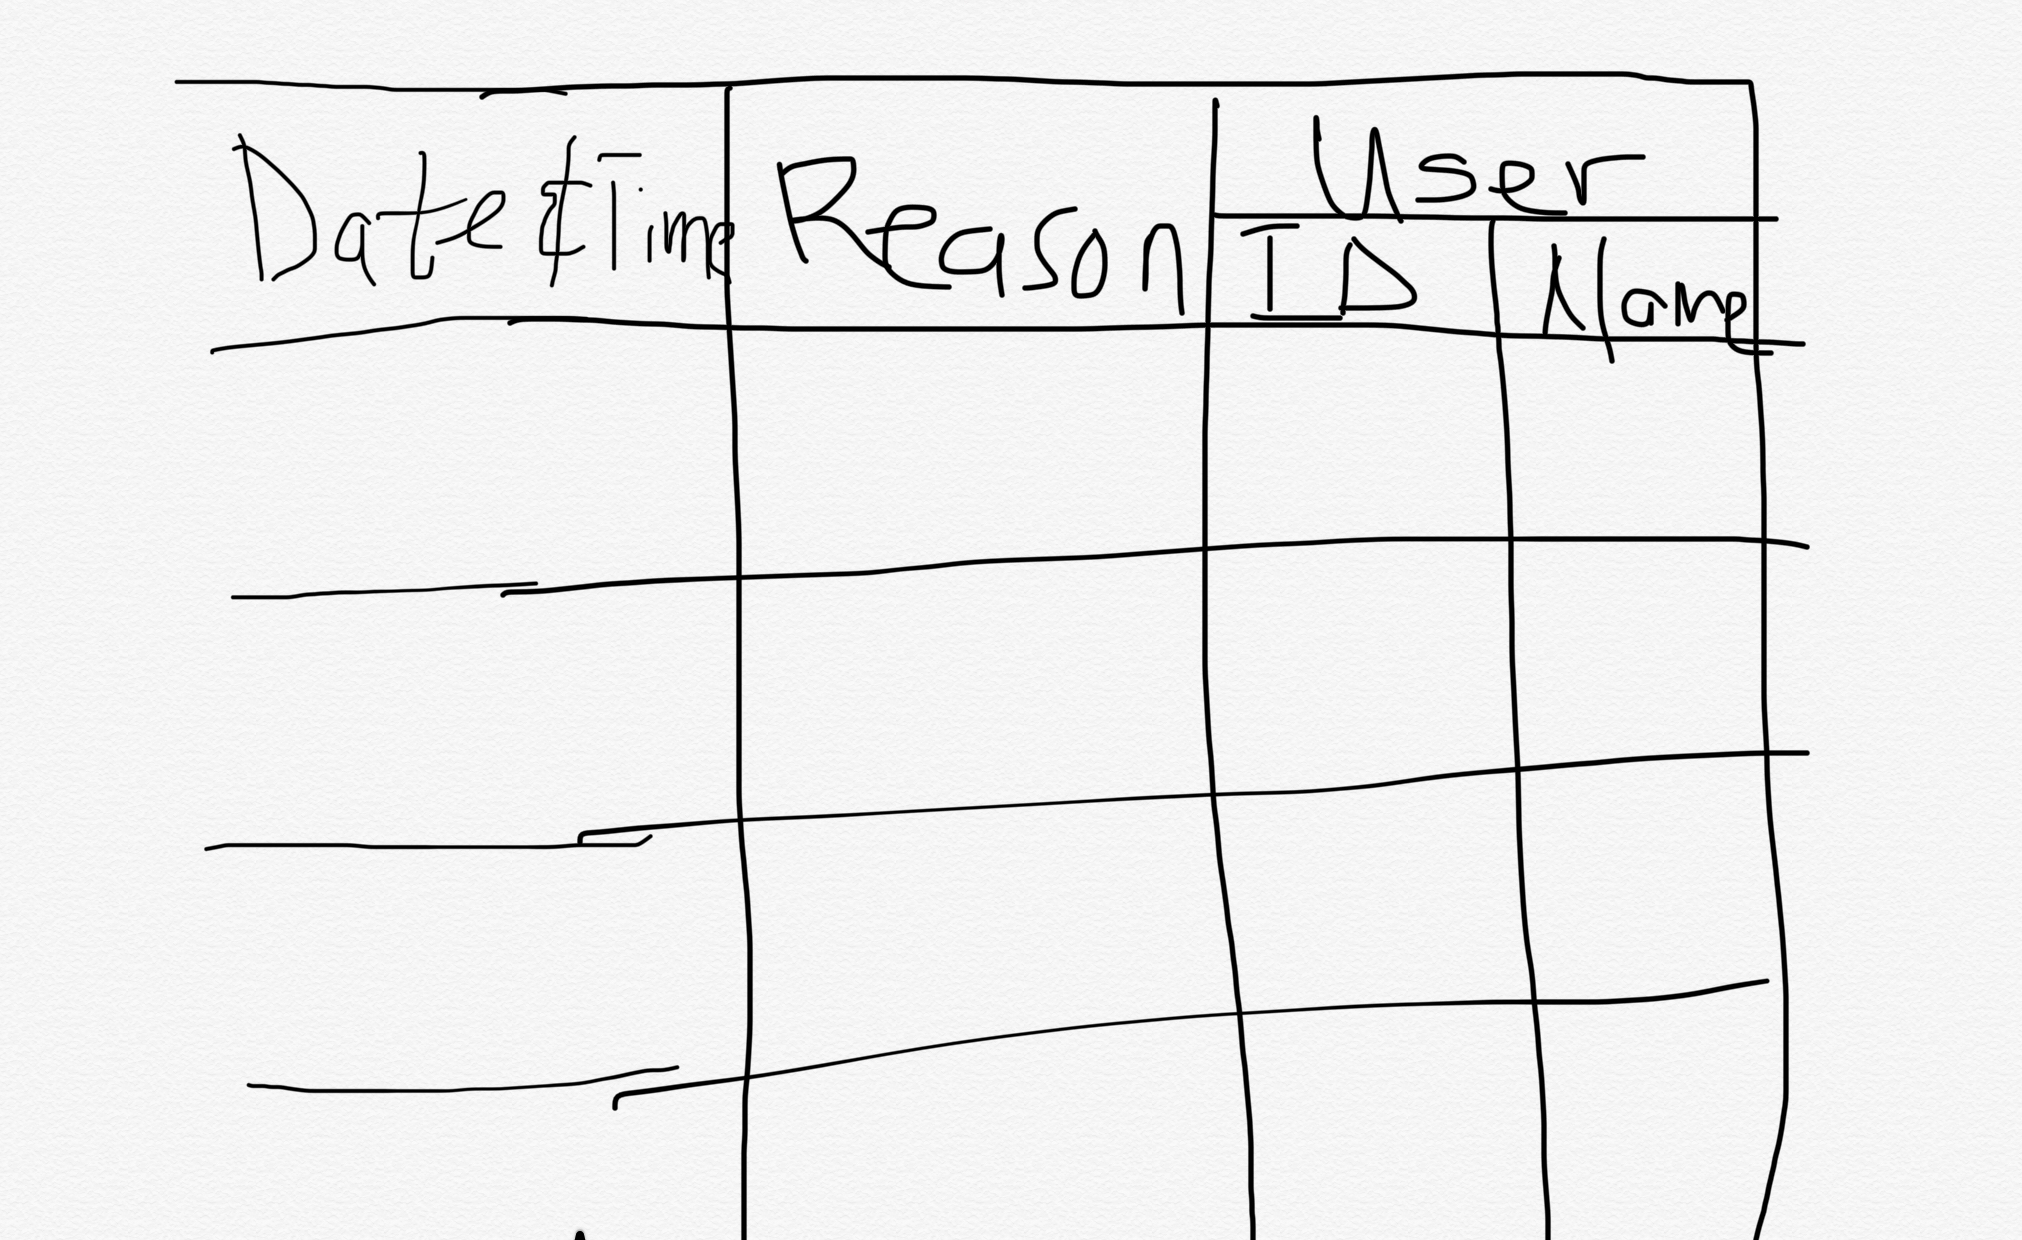 Date & Time Reason User
ID Name